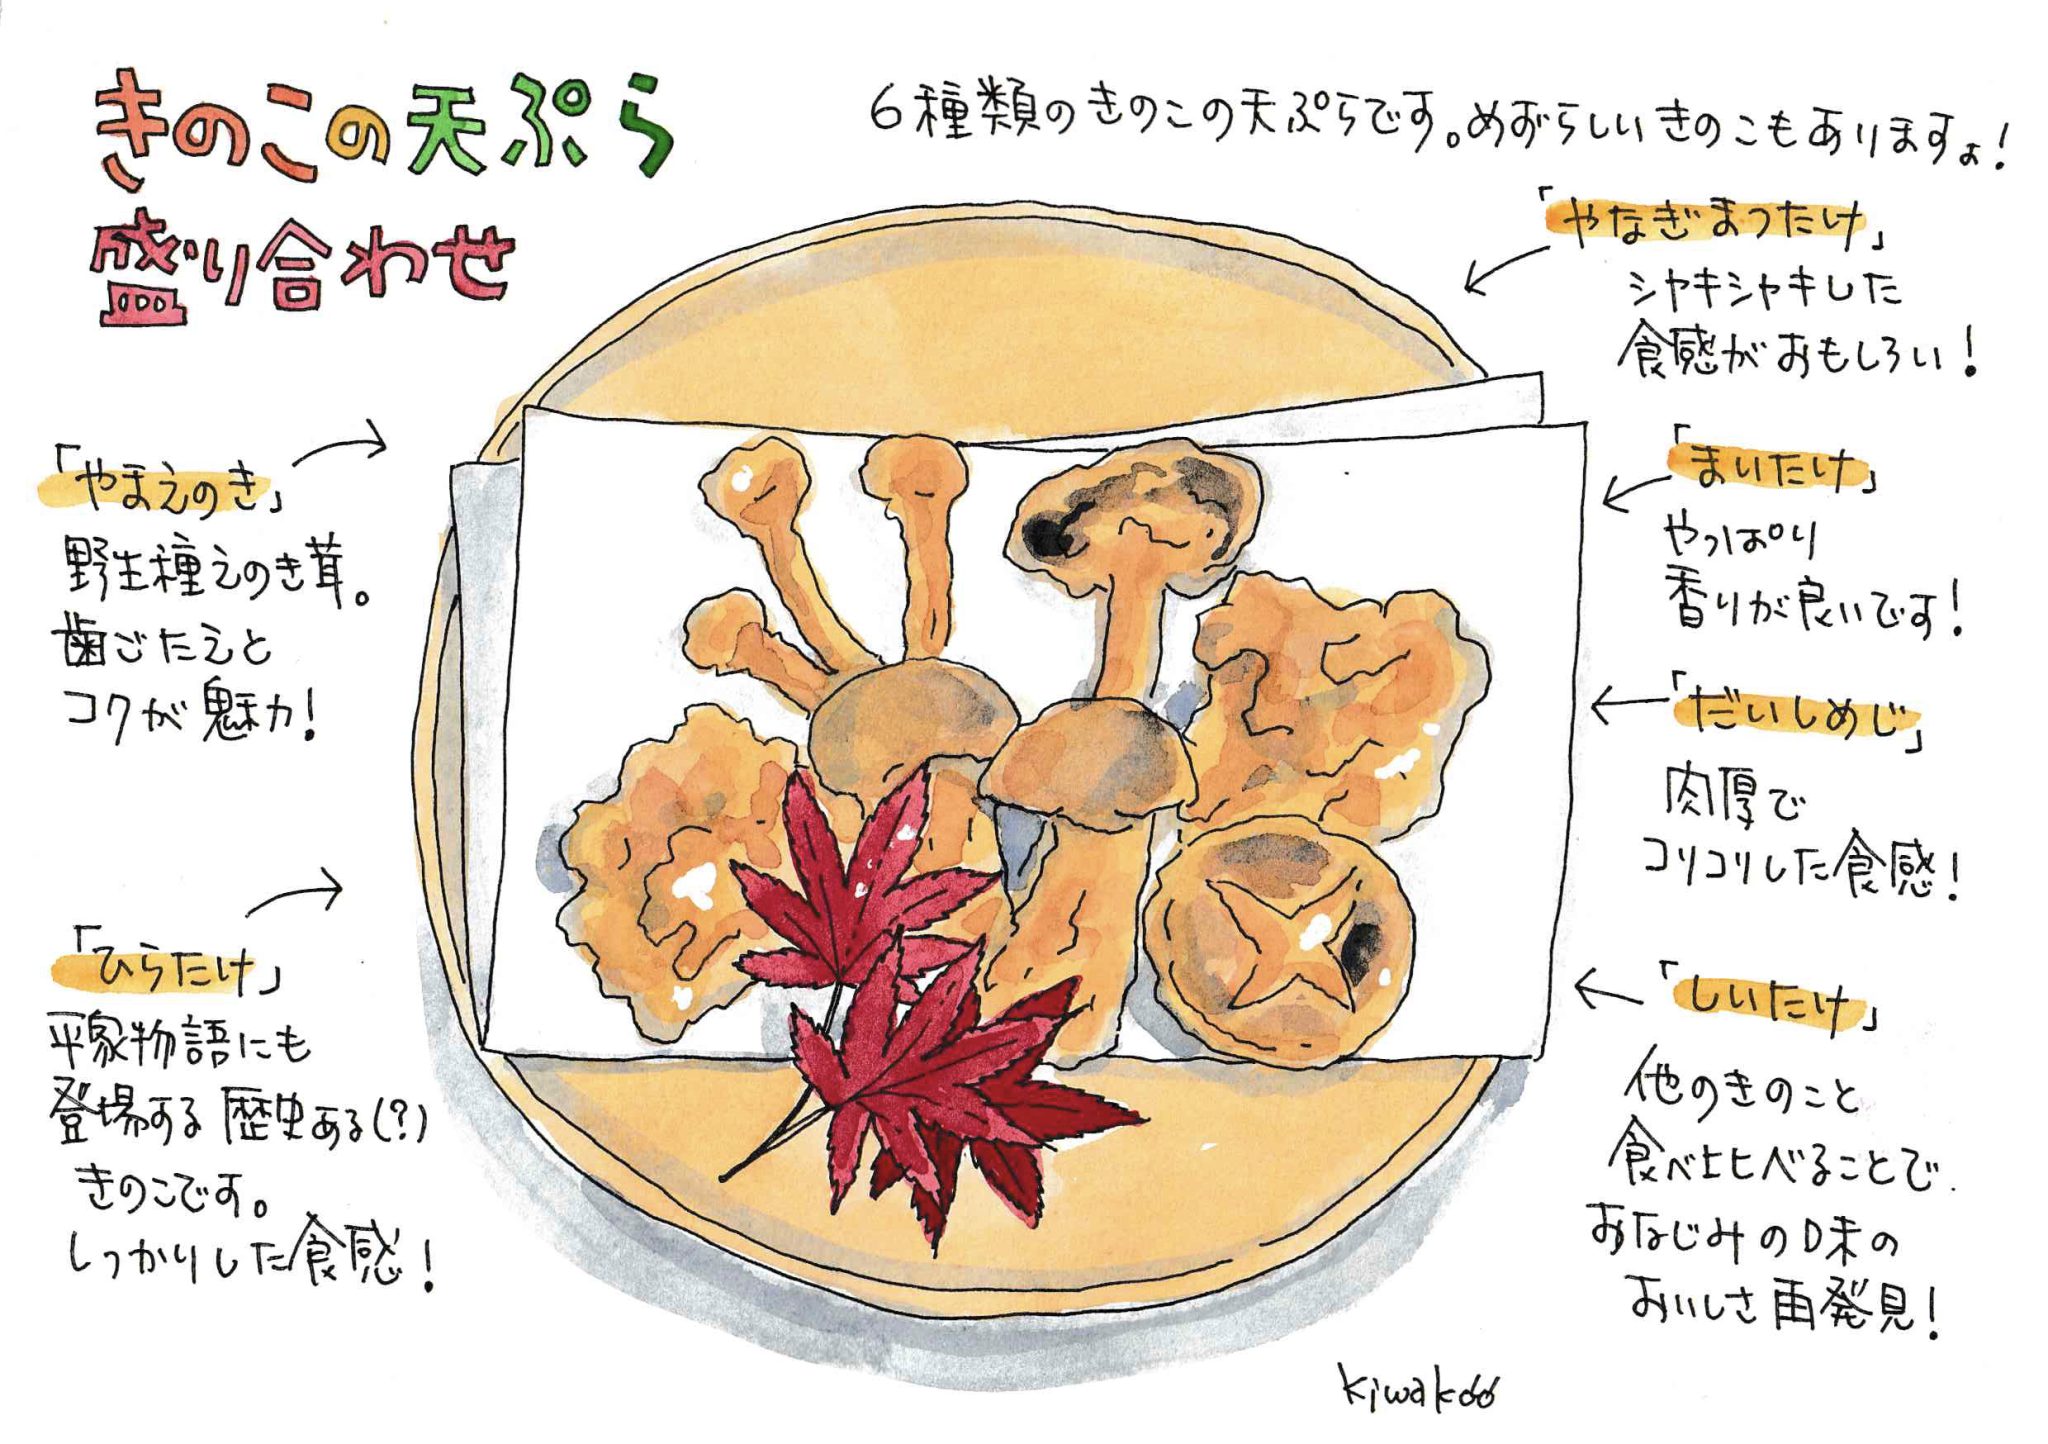 きのこの天ぷら
盛り合わせ
6種類のきのこの天ぷらです。めずらしいきのこもありますよ!
「やなぎまつたけ」
シャキシャキした
食感がおもしろい!
「まいたけ」
やっぱり
香りが良いです!
「だいしめじ」
肉厚で
コリコリした食感!
「しいたけ」
他のきのこと
食べ比べることで
おなじみの味の
おいしさ再発見!
「やまえのき」
野生種えのき茸。
歯ごたえと
コクが魅力!
「ひらたけ」
平家物語にも
登場する歴史ある(?)
きのこです。
しっかりした食感!
kiwakoo